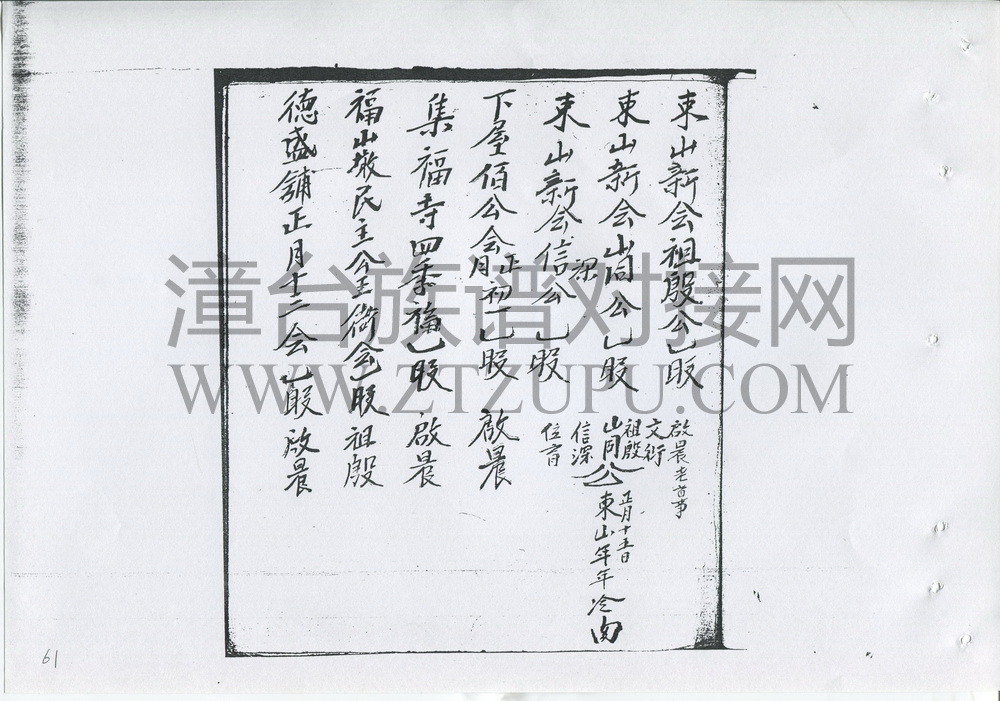 東山新会祖殷公乚股
東山新会山同公乚股
東山新会信深公乚股
啟晨老首事
文衍
祖殷
山同
信深
位育
公
正月十五日
東山年年冷肉
下屋佰公会正月初一乚股 啟晨
集福寺四季福乚股 啟晨
福山墩民主公王衍会乚股 祖殷
德盛舖正月十二会乚股 啟晨
漳台族谱对接网
WWW.ZTZUPU.COM
61